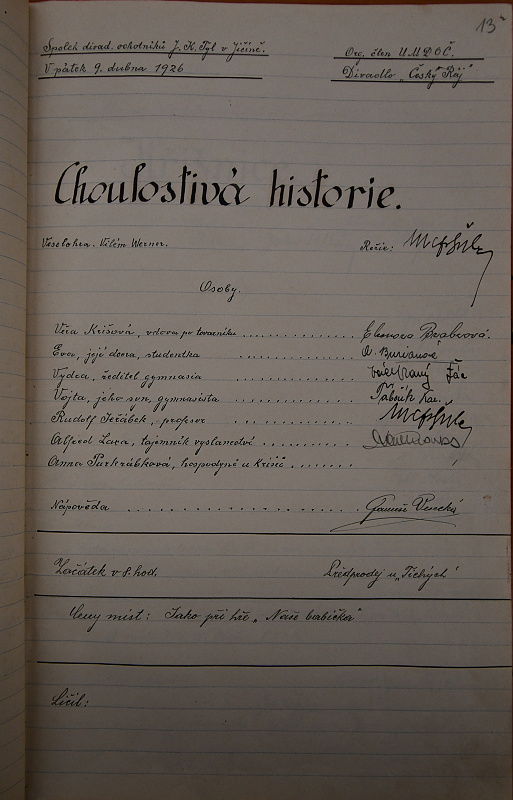 13
Spolek divad. ochotníků J. K. Tyl v Jičíně.
Org. člen Ú.M.D.O.Č.
V pátek 9. dubna 1926
Divadlo „Český Ráj"
Choulostivá historie.
Veselohra. Vilém Werner.
Režie:
Osoby.
Věra Křišová, vdova po továrníku .......... Eleonora Brabcová.
Eva, její dcera, studentka .......... Burianová
Vydra, ředitel gymnasia ..........
Vojta, jeho syn, gymnasista ..........
Rudolf Jeřábek, profesor ..........
Alfred Lára, tajemník vyslanectví ..........
Anna Purkrábková, hospodyně u Křišů .......
Nápověda ..........
Začátek v 8. hod.
Předprodej u „Tichých"
Ceny míst: Jako při hře „Naše babička"
Líčil: